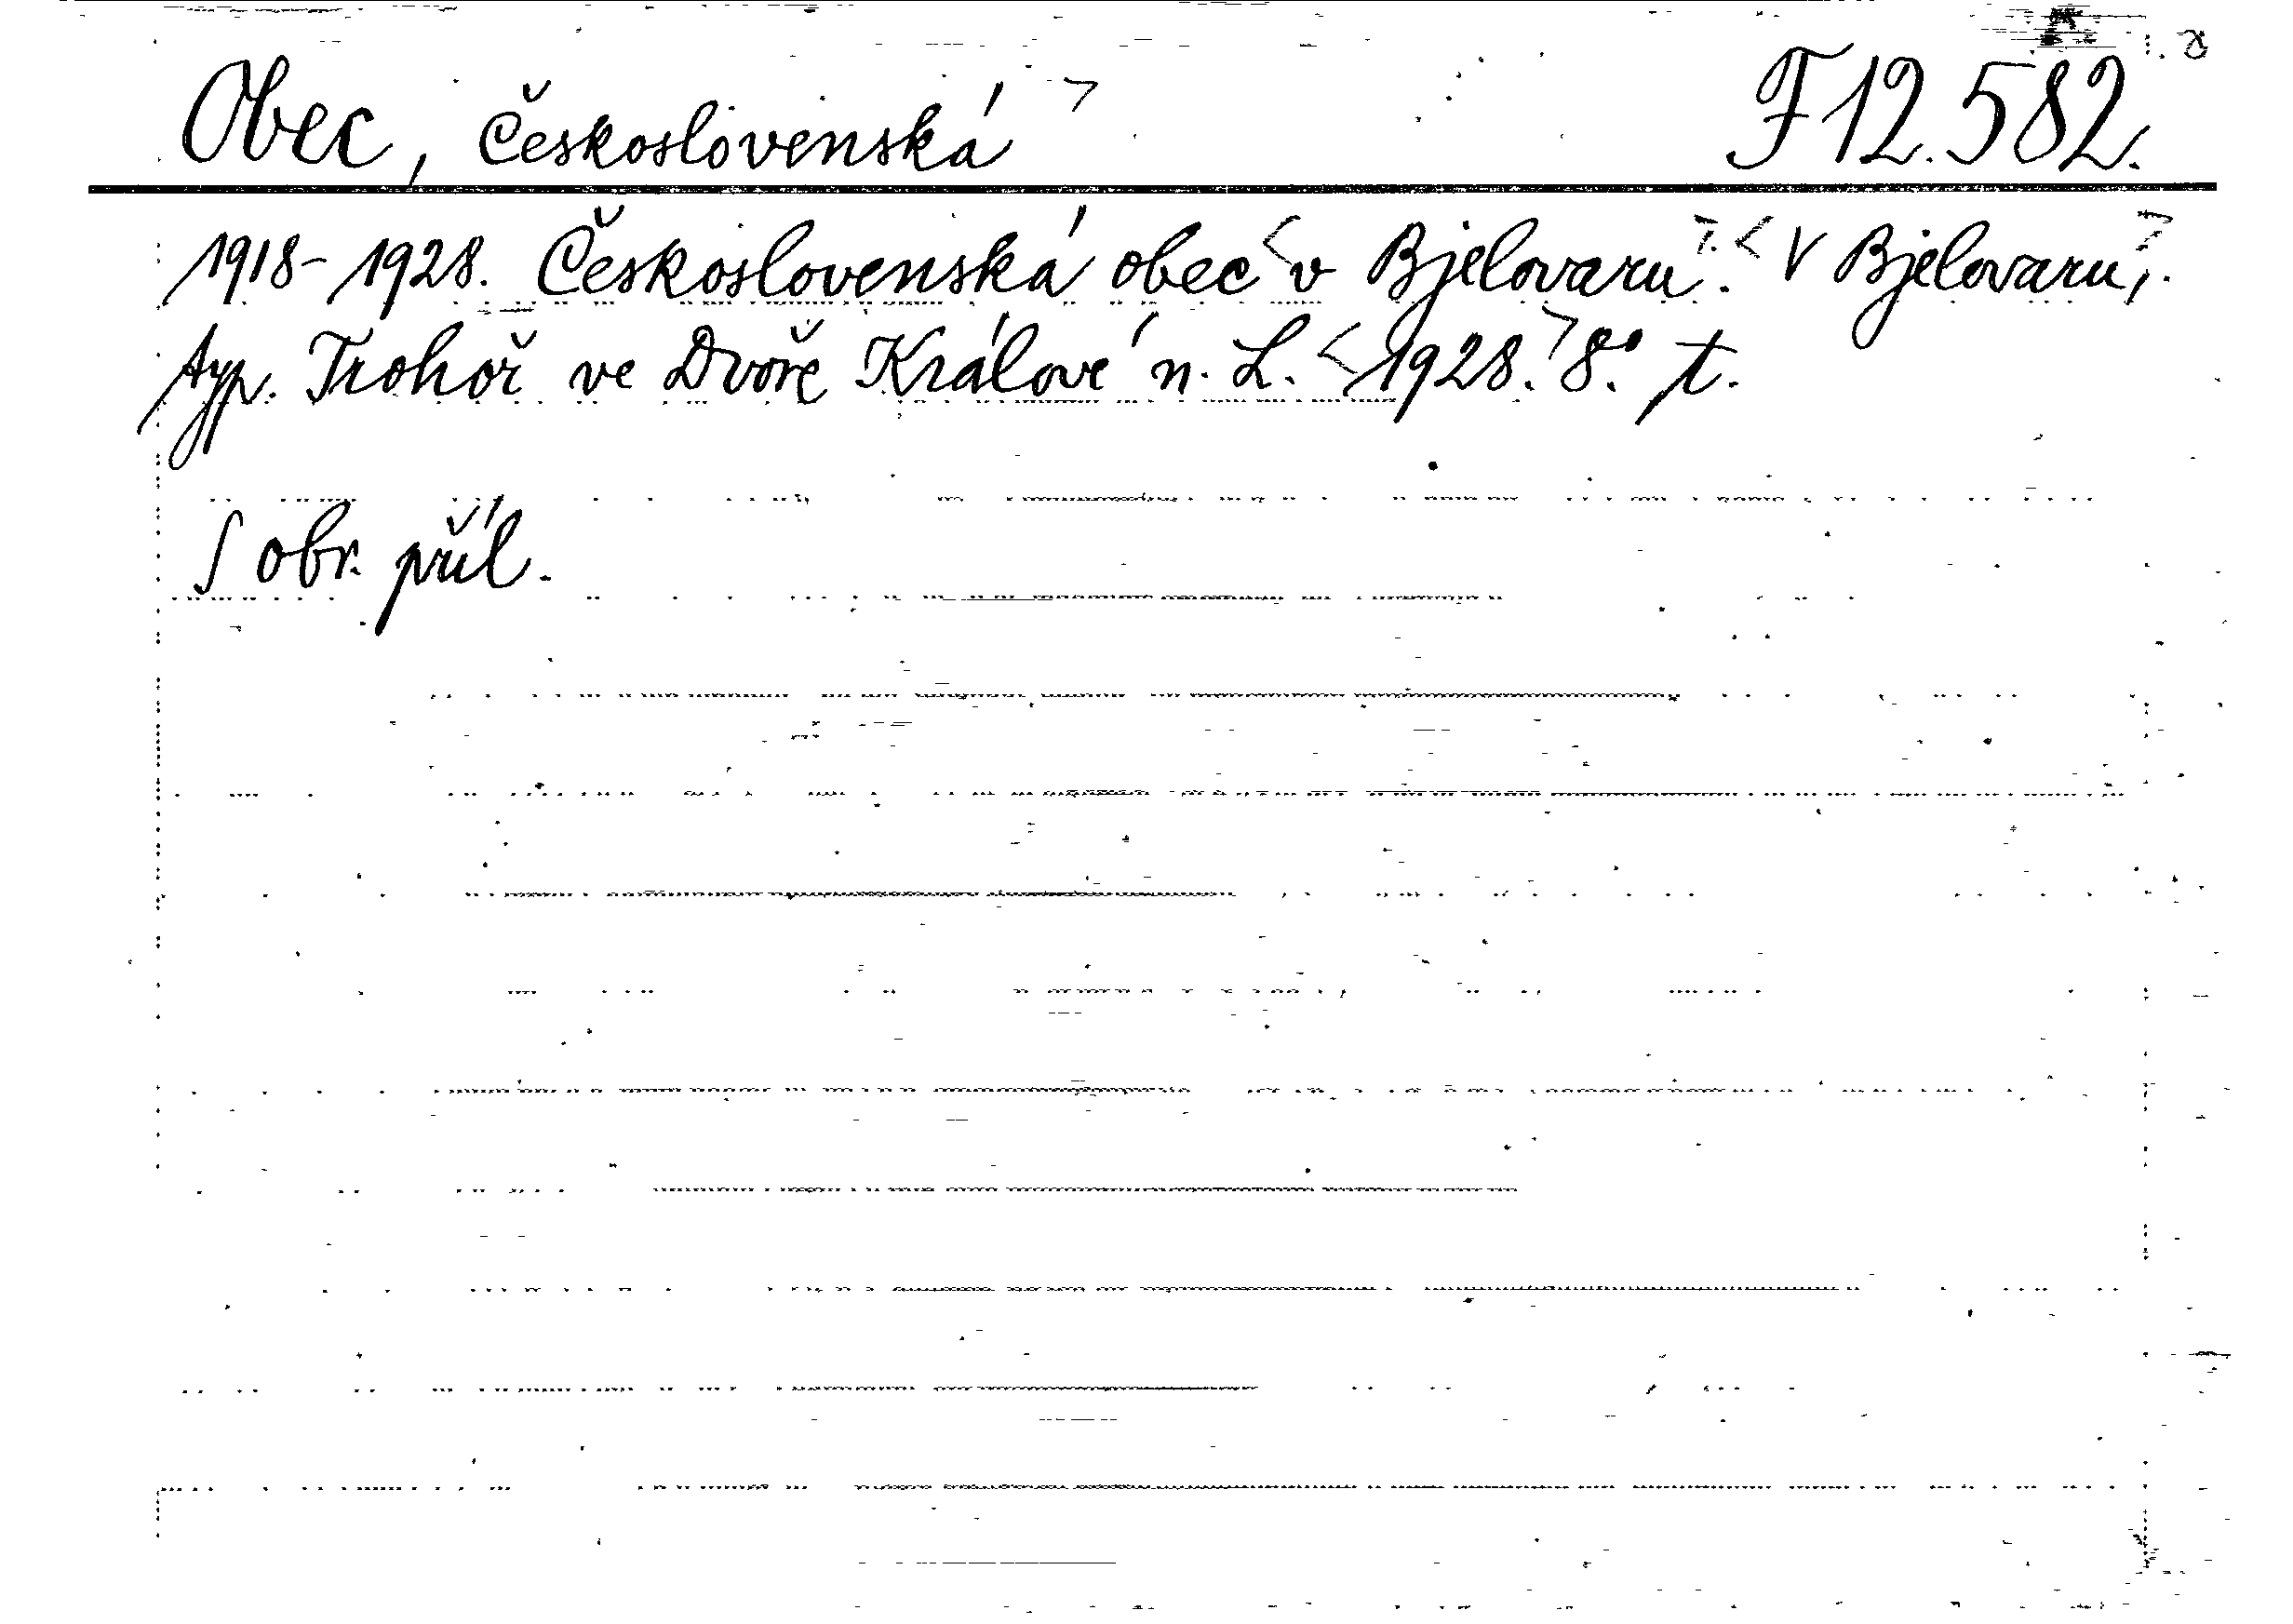 Obec, Československá F 12.582.
1918-1928. Československá obec v Bjelovaru. V Bjelovaru,
typ. Trohoř ve Dvoře Králové n. L. 1928. 8° t.
S obr. příl.